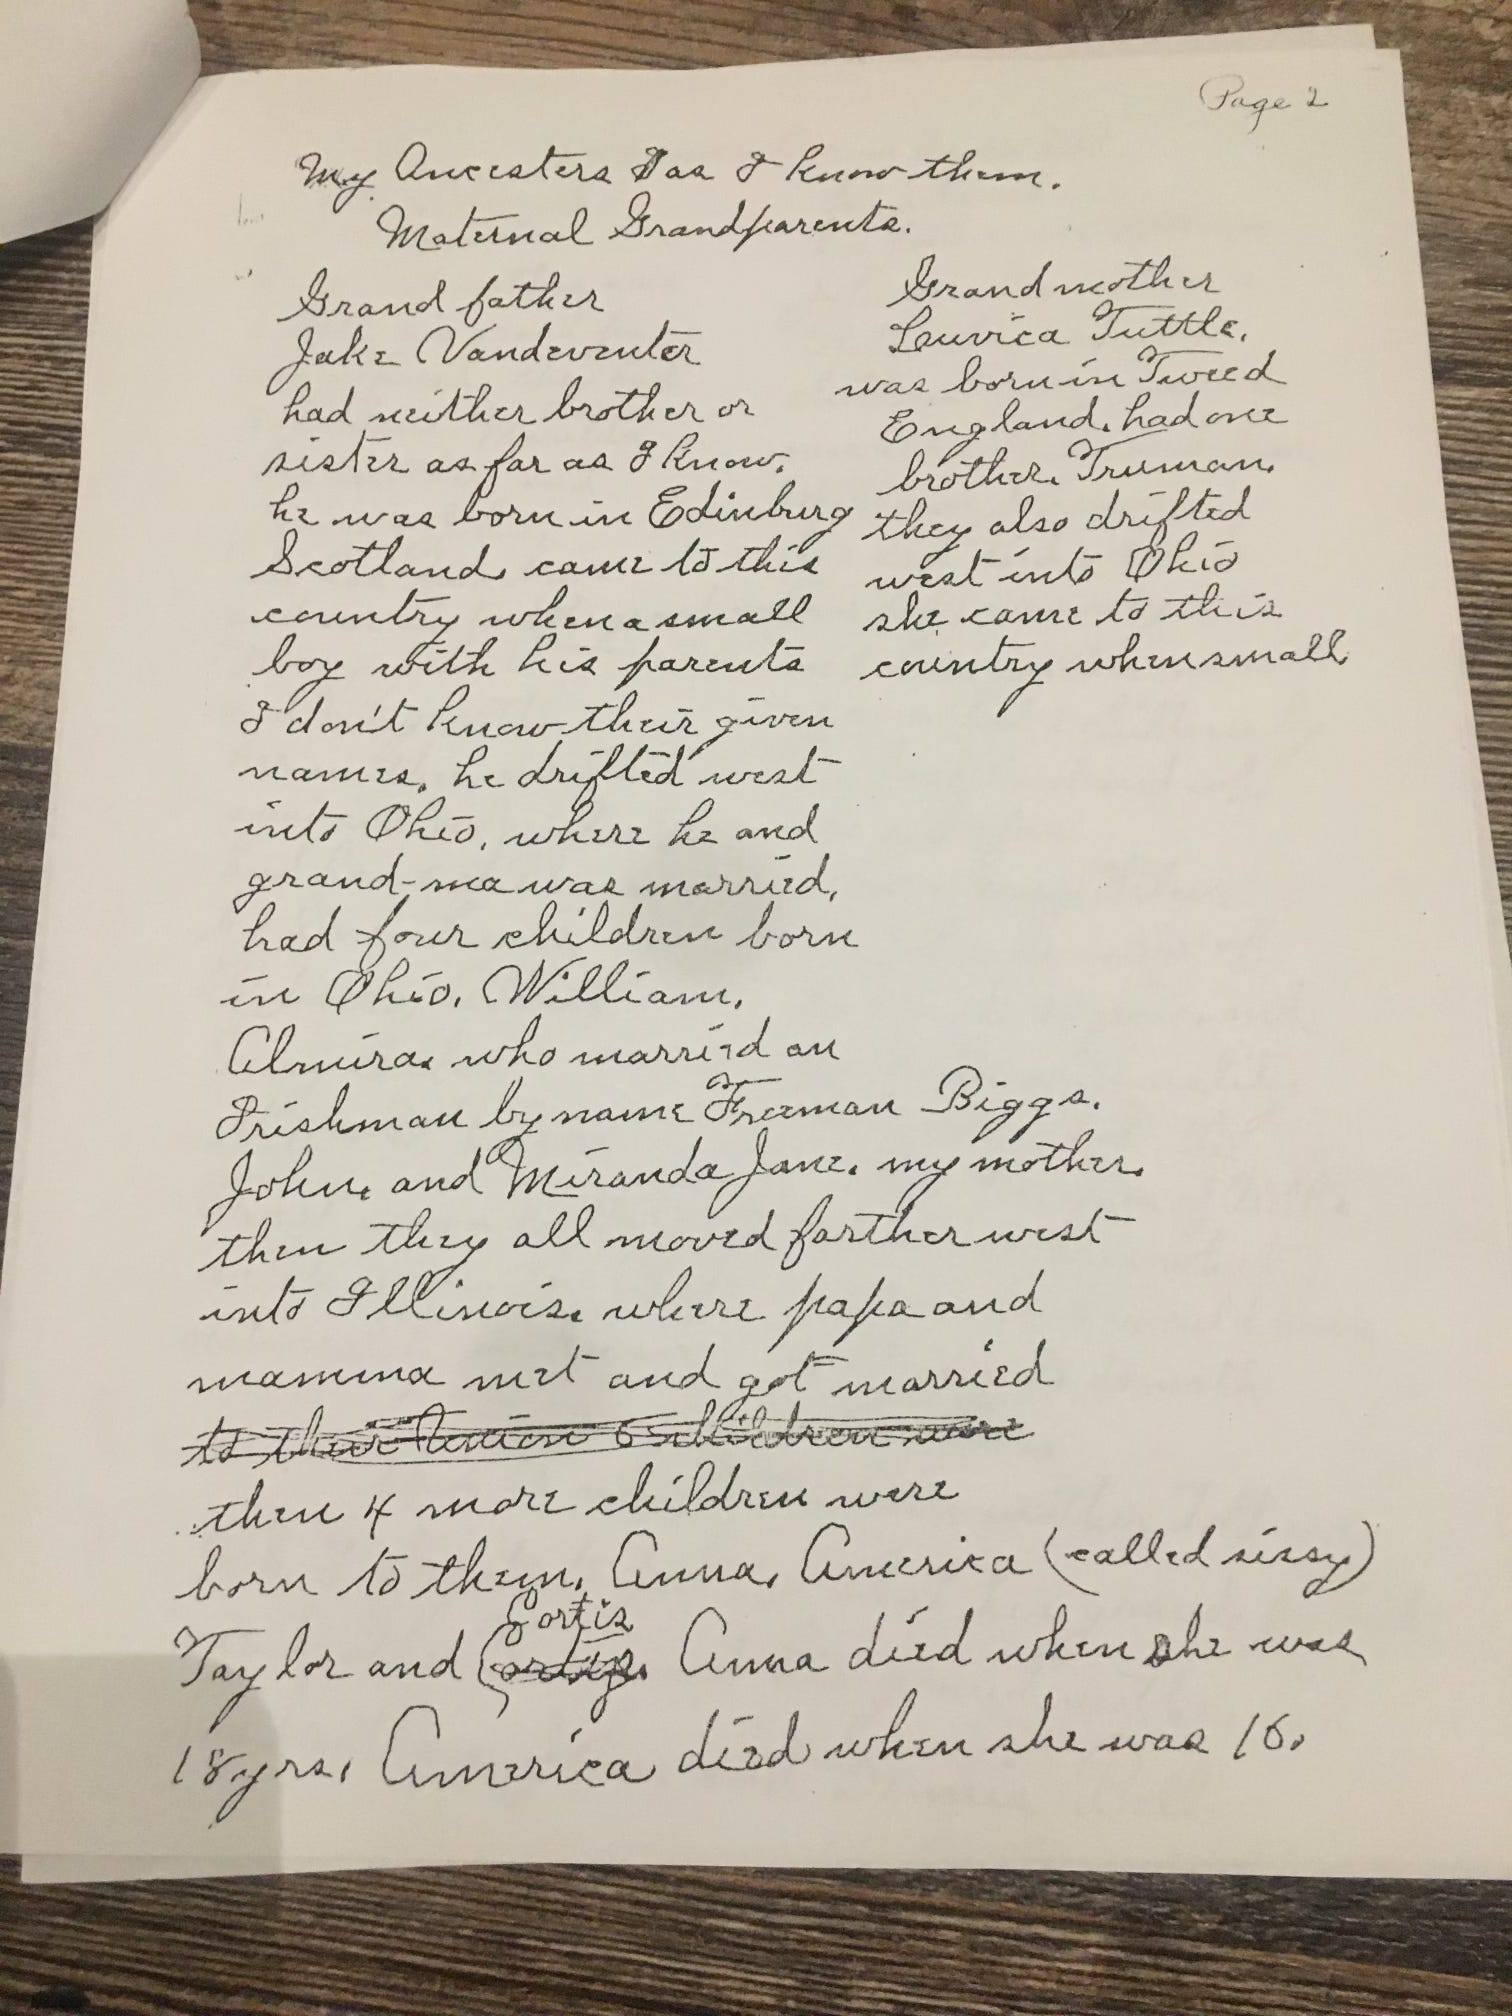 Page 2
My Ancesters as I know them.
Maternal Grandparents.
Grand father
Jake Vandeventer
had neither brother or
sister as far as I know.
he was born in Edinburg
Scotland, came to this
country when a small
boy with his parents
I don't know their given
names. he drifted west
into Ohio, where he and
grand-ma was married,
had four children born
in Ohio. William,
Almira, who married an
Irishman by name Freeman Biggs.
John, and Miranda Jane. my mother.
then they all moved farther west
into Illinois. where papa and
mamma met and got married
Grand mother
Leuvica Tuttle.
was born in Tweed
England. had one
brother. Truman.
they also drifted
west into Ohio
she came to this
country when small.
to their union 6 children were
then 4 more children were
born to them. Anna, America (called sissy)
Taylor and Cortis. Anna died when she was
18 yrs. America died when she was